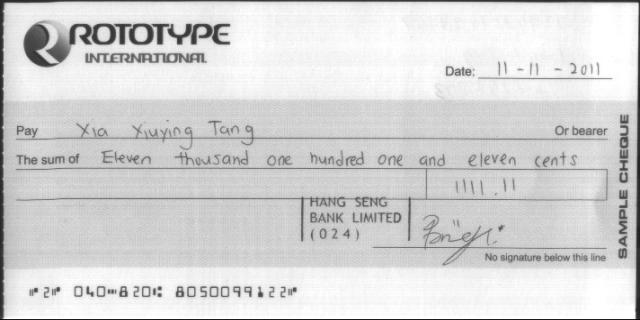 ROTOTYPE
INTERNATIONAL
Date: 11 - 11 - 2011
Pay Xia Xiuying Tang Or bearer
The sum of Eleven thousand one hundred one and eleven cents
1111.11
HANG SENG
BANK LIMITED
(024)
No signature below this line
SAMPLE CHEQUE
⑈2⑈ 040⑉820⑆ 8050099122⑈